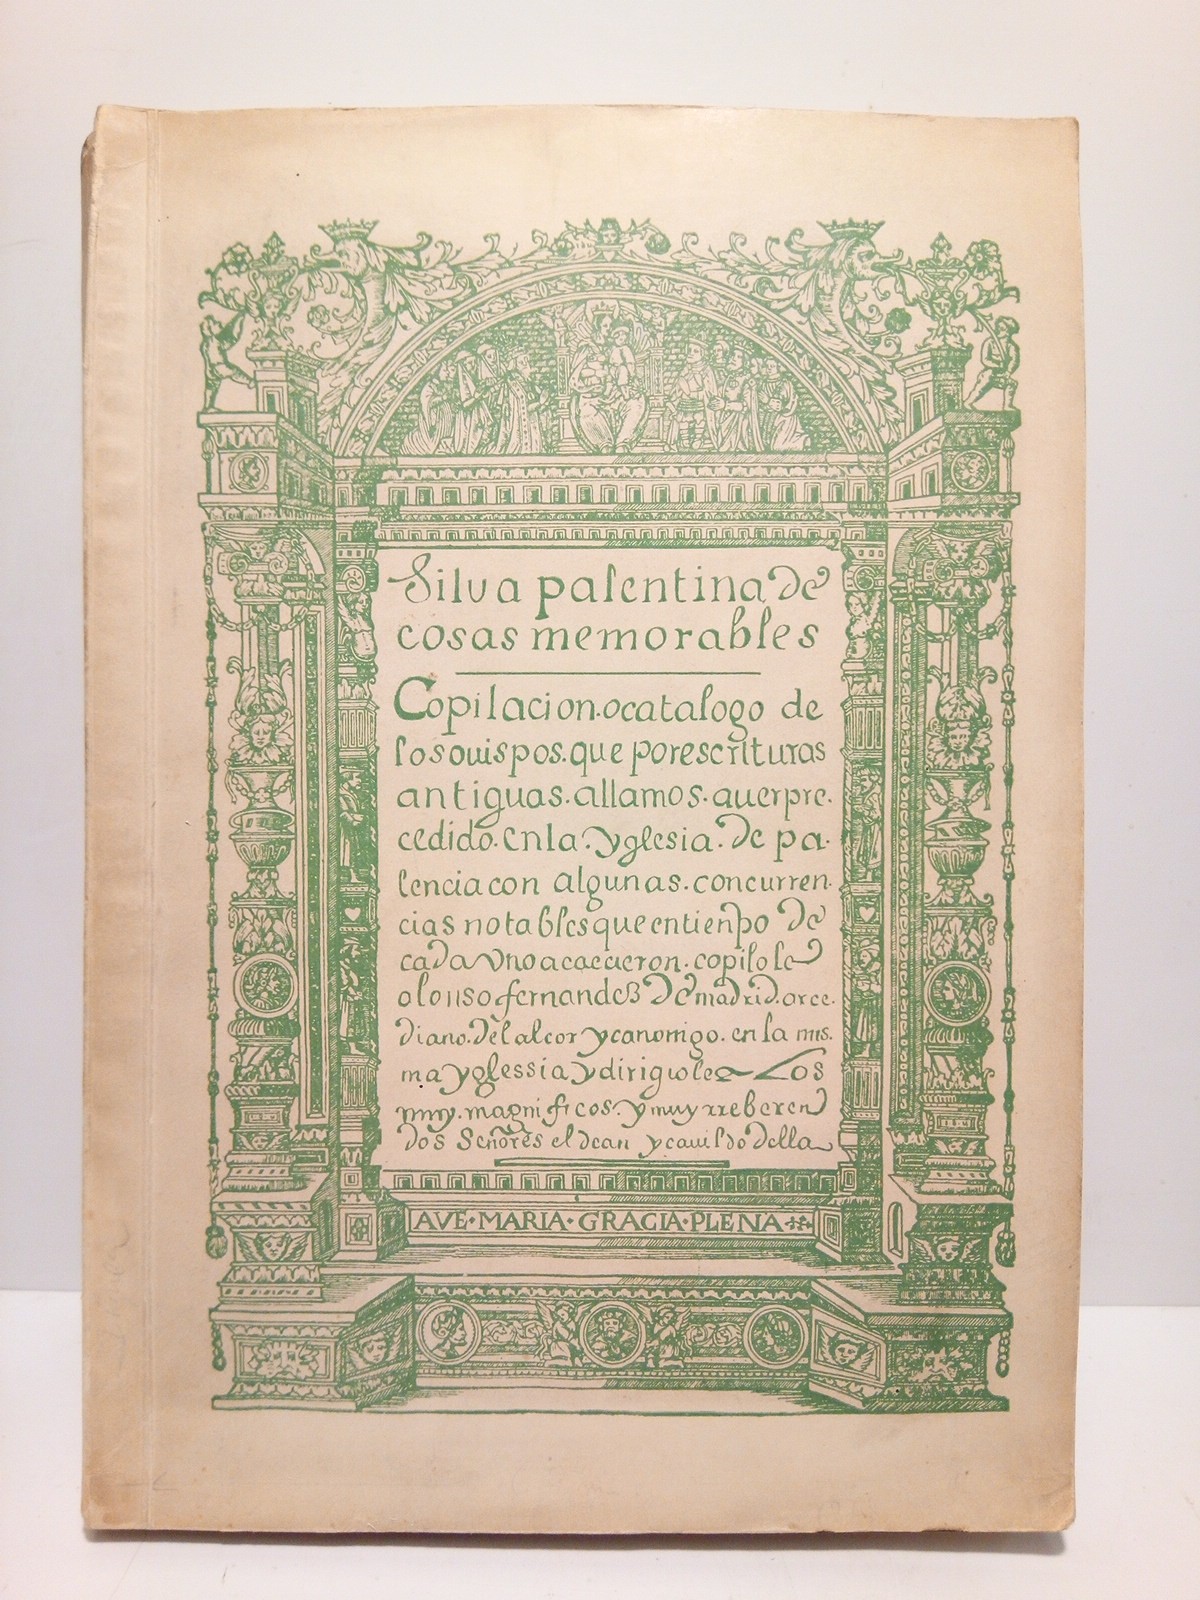 Silva palentina de
cosas memorables
Copilacion.o catalogo de
los ouispos.que por escrituras
antiguas.allamos.auer pre.
cedido.en la.yglesia.de pa.
lencia con algunas.concurren.
cias notables que en tienpo de
cada vno acaecieron.copilole
alonso fernandez de madrid.arce.
diano.del alcor y canonigo.en la mis.
ma yglessia y dirigiole a Los
muy.magnificos.y muy rreberen
dos Señores el dean y cauildo della
AVE·MARIA·GRACIA·PLENA